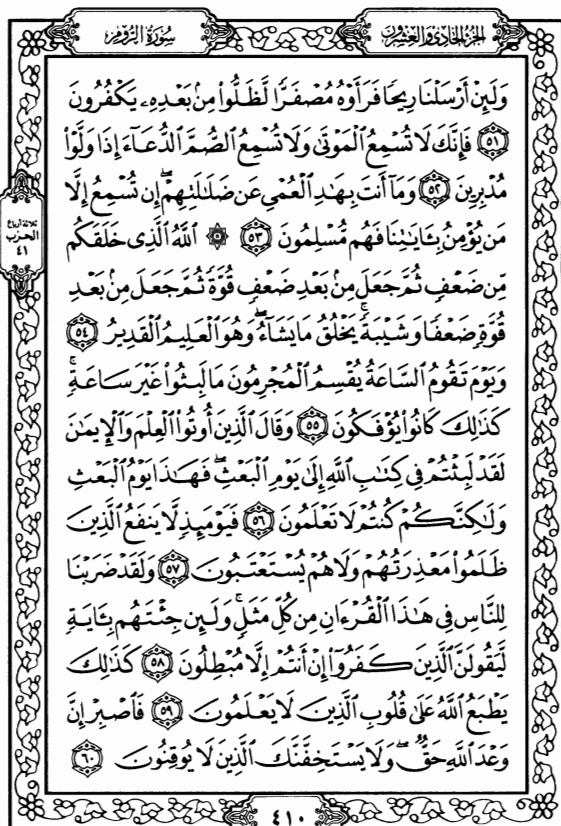 سُورَةُ الرُّومِ
الجُزْءُ الحَادِي وَالعِشْرُونَ
وَلَئِنْ أَرْسَلْنَا رِيحًا فَرَأَوْهُ مُصْفَرًّا لَّظَلُّوا۟ مِنۢ بَعْدِهِۦ يَكْفُرُونَ
٥١ فَإِنَّكَ لَا تُسْمِعُ ٱلْمَوْتَىٰ وَلَا تُسْمِعُ ٱلصُّمَّ ٱلدُّعَآءَ إِذَا وَلَّوْا۟
مُدْبِرِينَ ٥٢ وَمَآ أَنتَ بِهَٰدِ ٱلْعُمْىِ عَن ضَلَٰلَتِهِمْ ۖ إِن تُسْمِعُ إِلَّا
مَن يُؤْمِنُ بِـَٔايَٰتِنَا فَهُم مُّسْلِمُونَ ٥٣ ۞ ٱللَّهُ ٱلَّذِى خَلَقَكُم
مِّن ضَعْفٍ ثُمَّ جَعَلَ مِنۢ بَعْدِ ضَعْفٍ قُوَّةً ثُمَّ جَعَلَ مِنۢ بَعْدِ
قُوَّةٍ ضَعْفًا وَشَيْبَةً ۚ يَخْلُقُ مَا يَشَآءُ ۖ وَهُوَ ٱلْعَلِيمُ ٱلْقَدِيرُ ٥٤
وَيَوْمَ تَقُومُ ٱلسَّاعَةُ يُقْسِمُ ٱلْمُجْرِمُونَ مَا لَبِثُوا۟ غَيْرَ سَاعَةٍ ۚ
كَذَٰلِكَ كَانُوا۟ يُؤْفَكُونَ ٥٥ وَقَالَ ٱلَّذِينَ أُوتُوا۟ ٱلْعِلْمَ وَٱلْإِيمَٰنَ
لَقَدْ لَبِثْتُمْ فِى كِتَٰبِ ٱللَّهِ إِلَىٰ يَوْمِ ٱلْبَعْثِ ۖ فَهَٰذَا يَوْمُ ٱلْبَعْثِ
وَلَٰكِنَّكُمْ كُنتُمْ لَا تَعْلَمُونَ ٥٦ فَيَوْمَئِذٍ لَّا يَنفَعُ ٱلَّذِينَ
ظَلَمُوا۟ مَعْذِرَتُهُمْ وَلَا هُمْ يُسْتَعْتَبُونَ ٥٧ وَلَقَدْ ضَرَبْنَا
لِلنَّاسِ فِى هَٰذَا ٱلْقُرْءَانِ مِن كُلِّ مَثَلٍ ۚ وَلَئِن جِئْتَهُم بِـَٔايَةٍ
لَّيَقُولَنَّ ٱلَّذِينَ كَفَرُوٓا۟ إِنْ أَنتُمْ إِلَّا مُبْطِلُونَ ٥٨ كَذَٰلِكَ
يَطْبَعُ ٱللَّهُ عَلَىٰ قُلُوبِ ٱلَّذِينَ لَا يَعْلَمُونَ ٥٩ فَٱصْبِرْ إِنَّ
وَعْدَ ٱللَّهِ حَقٌّ ۖ وَلَا يَسْتَخِفَّنَّكَ ٱلَّذِينَ لَا يُوقِنُونَ ٦٠
ثلاثة أرباع
الحزب
٤١
٤١٠